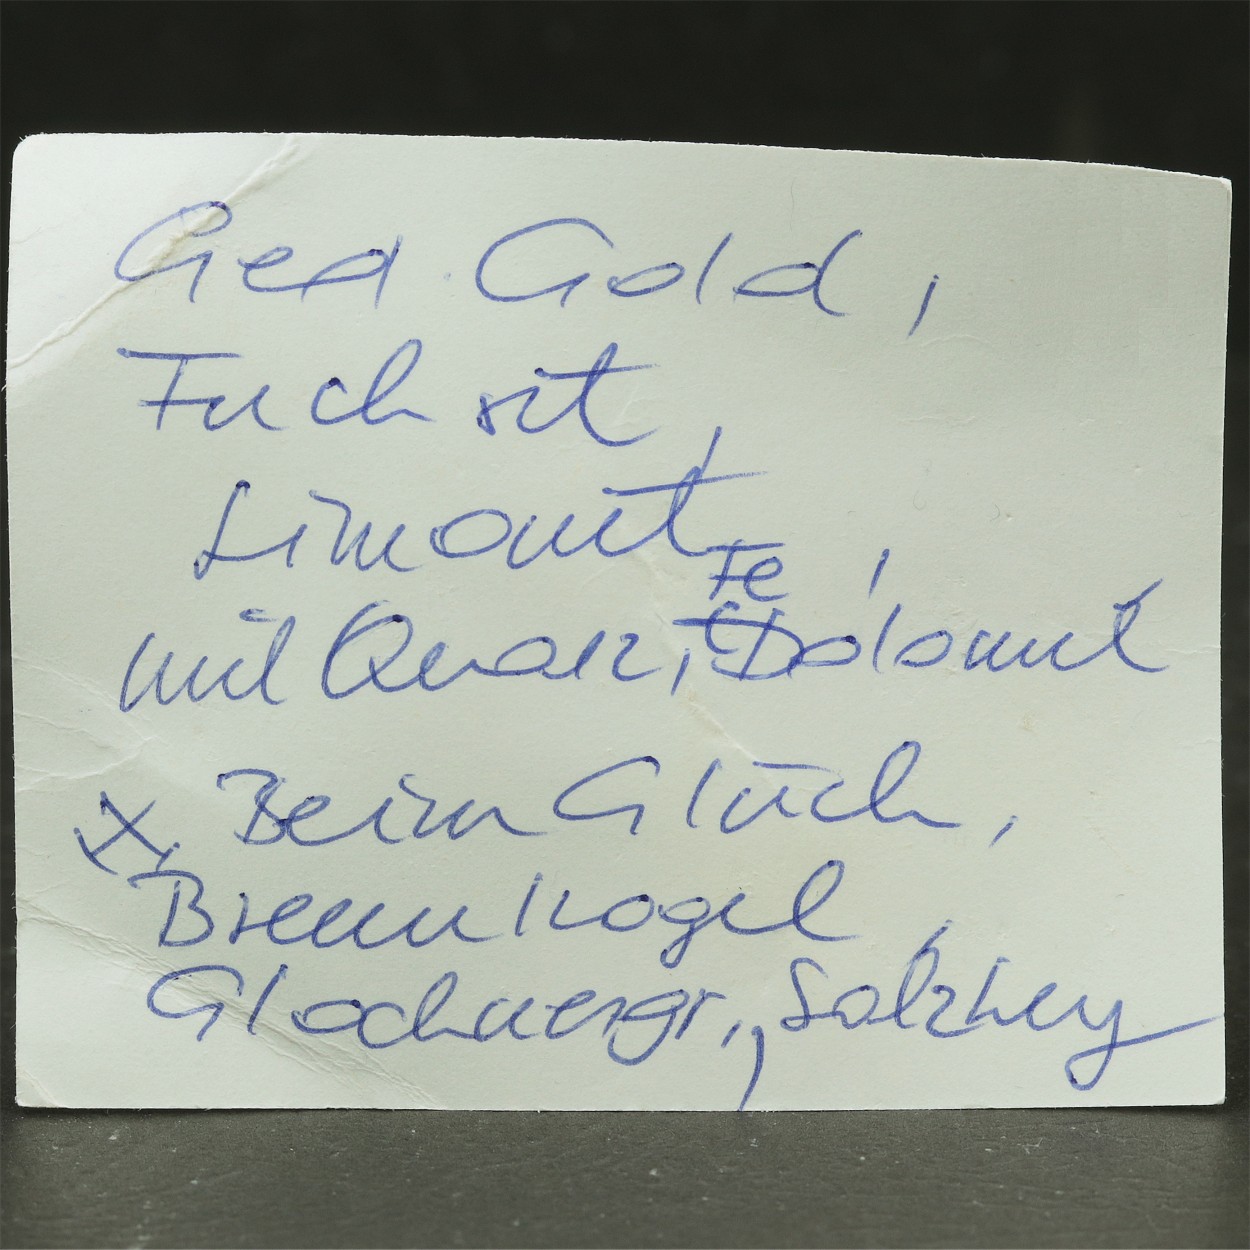 Ged. Gold,
Fuchsit,
Limonit,
mit Quarz, Fe Dolomit
X, Beim Glück,
Brennkogel,
Glocknergr., Salzburg